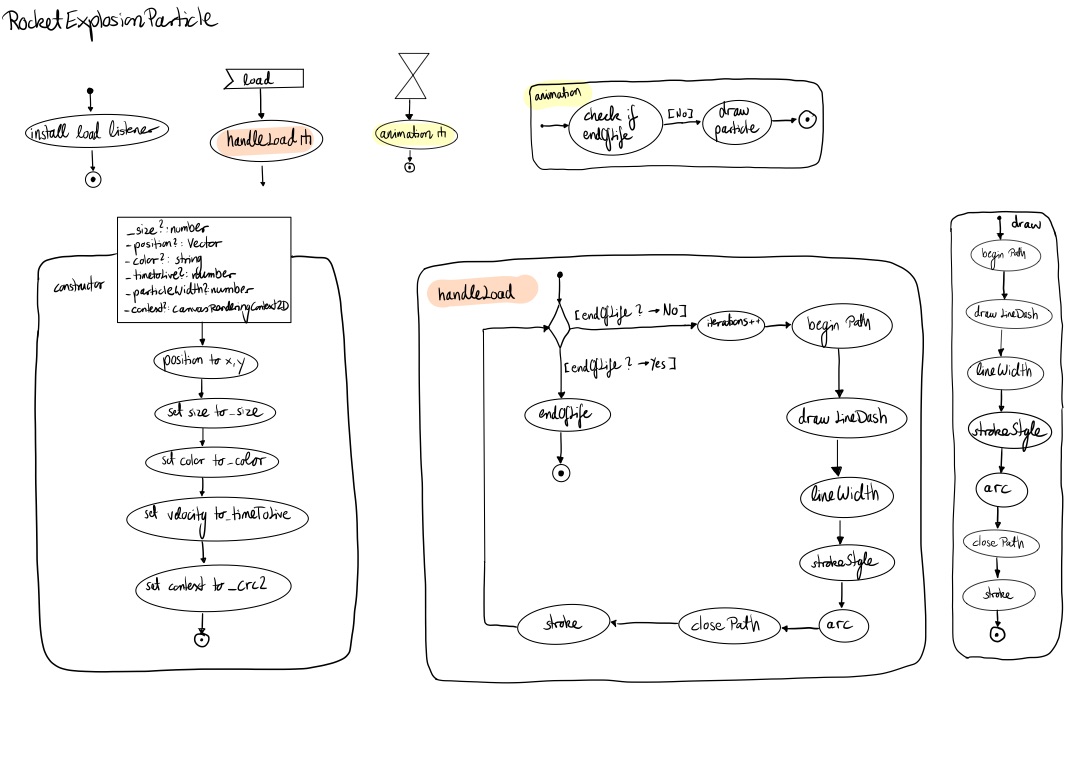 RocketExplosionParticle
install load listener
load
handleLoad
animation
animation
check if
endOfLife
[No]
draw
particle
constructor
_size?: number
-position?: Vector
-color?: string
-timetolive?: number
-particleWidth?: number
-context?: CanvasRenderingContext2D
position to x,y
set size to _size
set color to _color
set velocity to _timeToLive
set context to _crc2
handleLoad
[endOfLife ? → No]
iterations++
begin Path
[endOfLife ? → Yes]
endOfLife
draw LineDash
lineWidth
strokeStyle
arc
close Path
stroke
draw
begin Path
draw LineDash
lineWidth
strokeStyle
arc
close Path
stroke